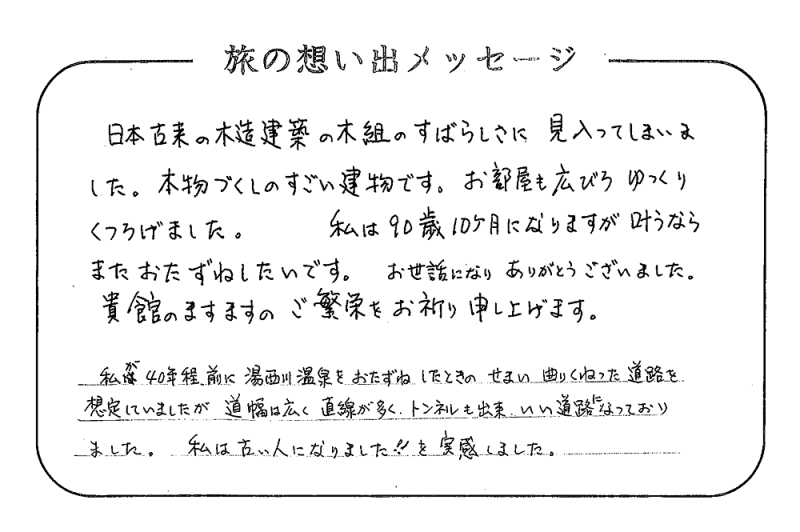 旅の想い出メッセージ
日本古来の木造建築の木組のすばらしさに 見入ってしまいま
した。本物づくしのすごい建物です。お部屋も広びろ ゆっくり
くつろげました。 私は90歳10ケ月になりますが 叶うなら
またおたずねしたいです。 お世話になり ありがとうございました。
貴館のますますの ご繁栄をお祈り申し上げます。
私が40年程前に 湯西川温泉をおたずねしたときの せまい 曲りくねった 道路を
想定していましたが 道幅は広く 直線が多く、トンネルも出来、いい道路になっており
ました。 私は古い人になりました!!を実感しました。